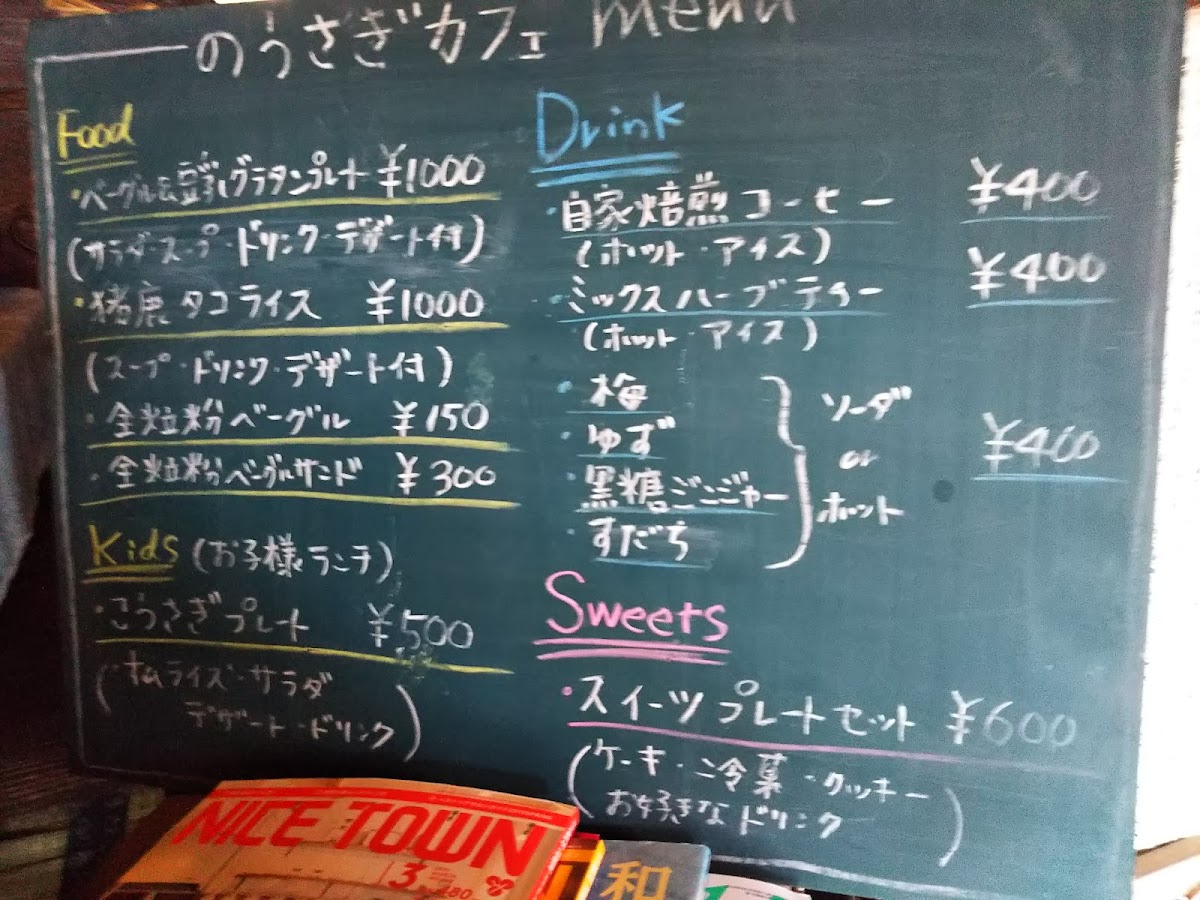 のうさぎカフェ menu
Food
・ベーグル&豆乳グラタンプレート ¥1000
(サラダ・スープ・ドリンク・デザート付)
・猪鹿タコライス ¥1000
(スープ・ドリンク・デザート付)
・全粒粉ベーグル ¥150
・全粒粉ベーグルサンド ¥300
Kids (お子様ランチ)
・こうさぎプレート ¥500
(オムライス・サラダ
デザート・ドリンク)
Drink
・自家焙煎コーヒー ¥400
(ホット・アイス)
・ミックスハーブティー ¥400
(ホット・アイス)
・梅
・ゆず
・黒糖ジンジャー
・すだち
ソーダ
or
ホット
¥400
Sweets
・スイーツプレートセット ¥600
(ケーキ・冷菓・クッキー
お好きなドリンク)
NICE TOWN
3
和